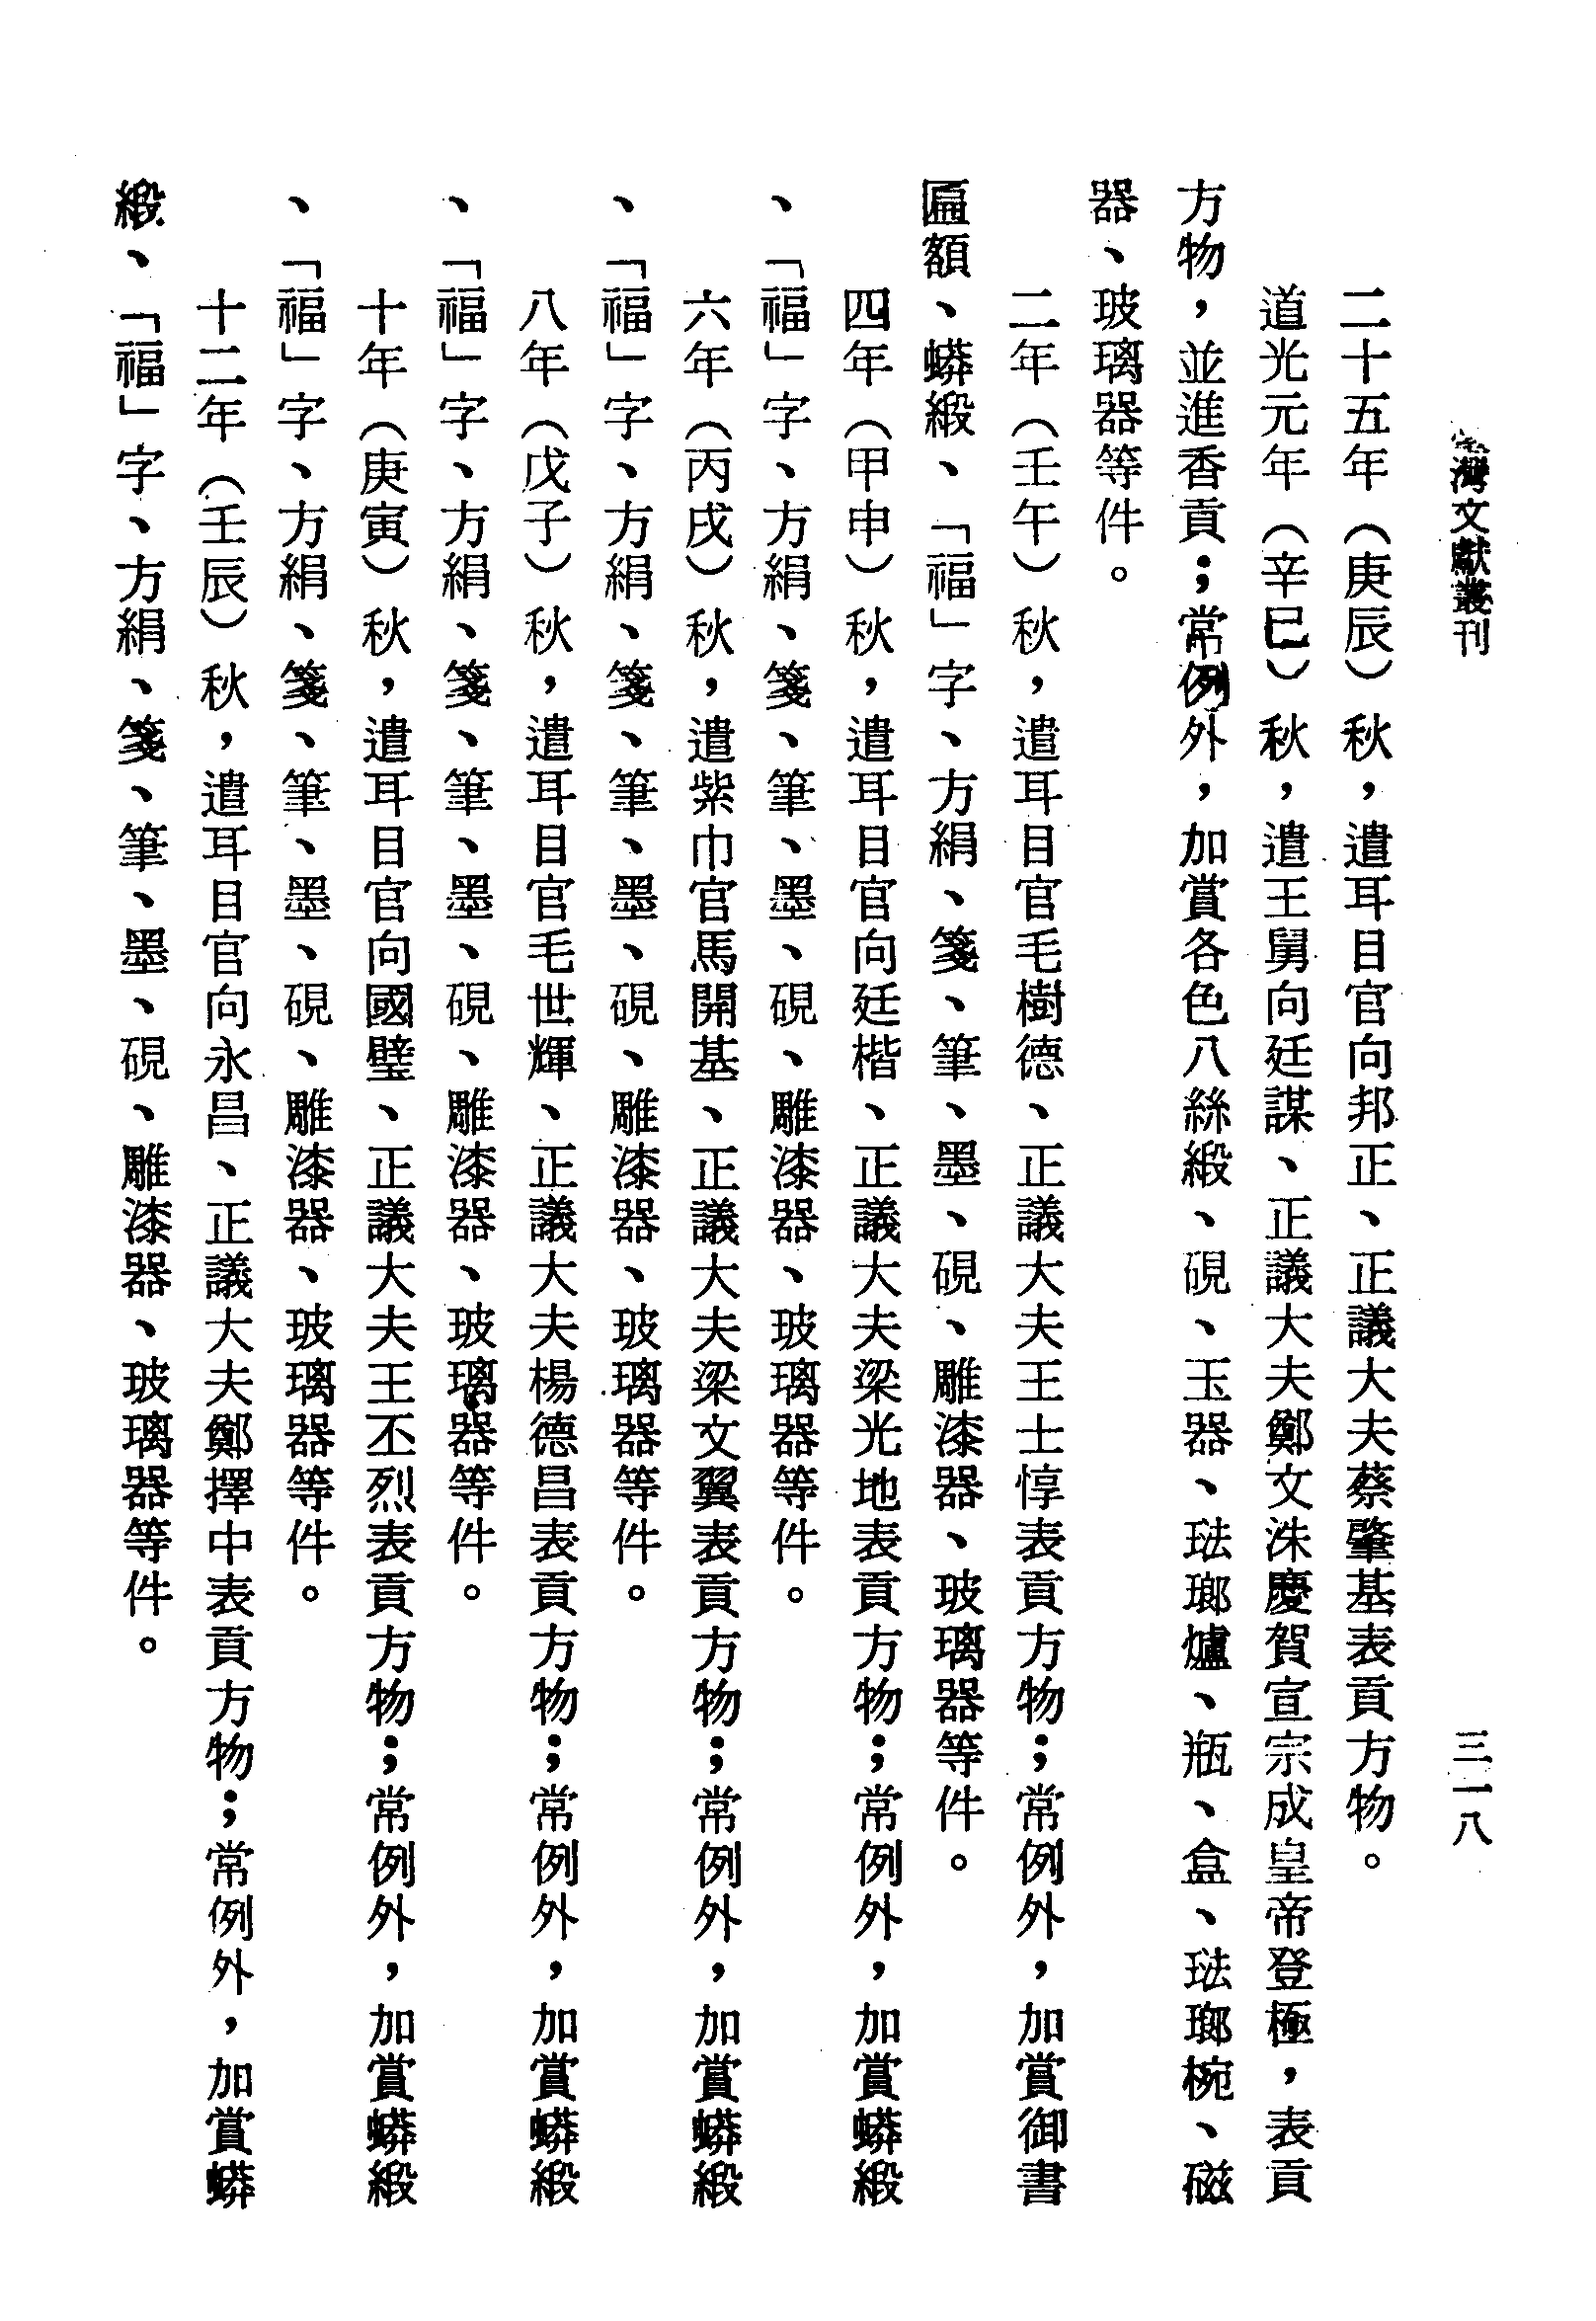 臺灣文獻叢刊
三一八
二十五年（庚辰）秋，遣耳目官向邦正、正議大夫蔡肇基表貢方物。
道光元年（辛巳）秋，遣王舅向廷謀、正議大夫鄭文洙慶賀宣宗成皇帝登極，表貢
方物，並進香貢；常例外，加賞各色八絲緞、硯、玉器、琺瑯爐、瓶、盒、琺瑯椀、磁
器、玻璃器等件。
二年（壬午）秋，遣耳目官毛樹德、正議大夫王士惇表貢方物；常例外，加賞御書
匾額、蟒緞、「福」字、方絹、箋、筆、墨、硯、雕漆器、玻璃器等件。
四年（甲申）秋，遣耳目官向廷楷、正議大夫梁光地表貢方物；常例外，加賞蟒緞
、「福」字、方絹、箋、筆、墨、硯、雕漆器、玻璃器等件。
六年（丙戌）秋，遣紫巾官馬開基、正議大夫梁文翼表貢方物；常例外，加賞蟒緞
、「福」字、方絹、箋、筆、墨、硯、雕漆器、玻璃器等件。
八年（戊子）秋，遣耳目官毛世輝、正議大夫楊德昌表貢方物；常例外，加賞蟒緞
、「福」字、方絹、箋、筆、墨、硯、雕漆器、玻璃器等件。
十年（庚寅）秋，遣耳目官向國璧、正議大夫王丕烈表貢方物；常例外，加賞蟒緞
、「福」字、方絹、箋、筆、墨、硯、雕漆器、玻璃器等件。
十二年（壬辰）秋，遣耳目官向永昌、正議大夫鄭擇中表貢方物；常例外，加賞蟒
緞、「福」字、方絹、箋、筆、墨、硯、雕漆器、玻璃器等件。